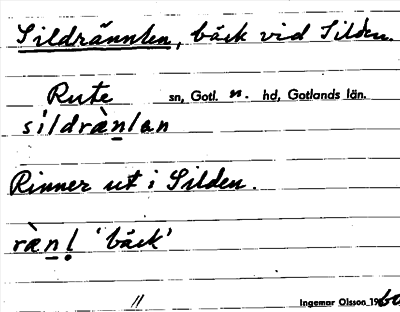 Sildrännlen, bäck vid Silden.
Rute sn, Gotl. n. hd, Gotlands län.
sìldræ̀nlan
Rinner ut i Silden.
ræ̀nḷ 'bäck'
Ingemar Olsson 1960